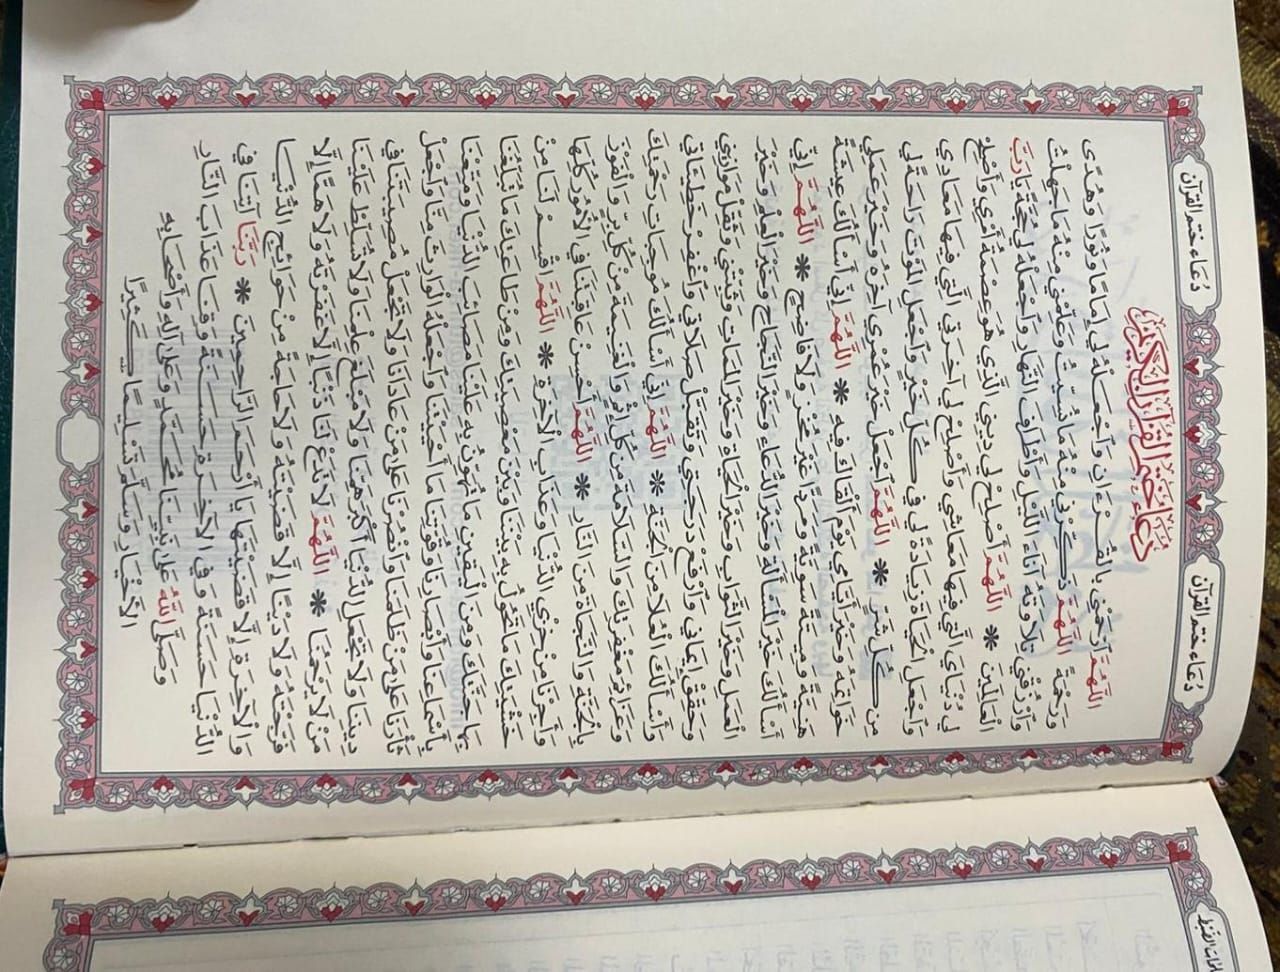 دُعَاء خَتْم القُرْآن
دُعَاء خَتْم القُرْآن
دُعَاءُ خَتْمِ الْقُرْآنِ الْكَرِيمِ
اللَّهُمَّ ارْحَمْنِي بِالْقُرْءَانِ وَاجْعَلْهُ لِي إِمَامًا وَنُورًا وَهُدًى
وَرَحْمَةً اللَّهُمَّ ذَكِّرْنِي مِنْهُ مَا نَسِيتُ وَعَلِّمْنِي مِنْهُ مَا جَهِلْتُ
وَارْزُقْنِي تِلَاوَتَهُ آنَاءَ اللَّيْلِ وَأَطْرَافَ النَّهَارِ وَاجْعَلْهُ لِي حُجَّةً يَا رَبَّ
الْعَالَمِينَ * اللَّهُمَّ أَصْلِحْ لِي دِينِي الَّذِي هُوَ عِصْمَةُ أَمْرِي وَأَصْلِحْ
لِي دُنْيَايَ الَّتِي فِيهَا مَعَاشِي وَأَصْلِحْ لِي آخِرَتِي الَّتِي فِيهَا مَعَادِي
وَاجْعَلِ الْحَيَاةَ زِيَادَةً لِي فِي كُلِّ خَيْرٍ وَاجْعَلِ الْمَوْتَ رَاحَةً لِي
مِنْ كُلِّ شَرٍّ * اللَّهُمَّ اجْعَلْ خَيْرَ عُمْرِي آخِرَهُ وَخَيْرَ عَمَلِي
خَوَاتِمَهُ وَخَيْرَ أَيَّامِي يَوْمَ أَلْقَاكَ فِيهِ * اللَّهُمَّ إِنِّي أَسْأَلُكَ عِيشَةً
هَنِيَّةً وَمِيتَةً سَوِيَّةً وَمَرَدًّا غَيْرَ مُخْزٍ وَلَا فَاضِحٍ * اللَّهُمَّ إِنِّي
أَسْأَلُكَ خَيْرَ الْمَسْأَلَةِ وَخَيْرَ الدُّعَاءِ وَخَيْرَ النَّجَاحِ وَخَيْرَ الْعِلْمِ وَخَيْرَ
الْعَمَلِ وَخَيْرَ الثَّوَابِ وَخَيْرَ الْحَيَاةِ وَخَيْرَ الْمَمَاتِ وَثَبِّتْنِي وَثَقِّلْ مَوَازِينِي
وَحَقِّقْ إِيمَانِي وَارْفَعْ دَرَجَتِي وَتَقَبَّلْ صَلَاتِي وَاغْفِرْ خَطِيئَاتِي
وَأَسْأَلُكَ الْعُلَا مِنَ الْجَنَّةِ * اللَّهُمَّ إِنِّي أَسْأَلُكَ مُوجِبَاتِ رَحْمَتِكَ
وَعَزَائِمَ مَغْفِرَتِكَ وَالسَّلَامَةَ مِنْ كُلِّ إِثْمٍ وَالْغَنِيمَةَ مِنْ كُلِّ بِرٍّ وَالْفَوْزَ
بِالْجَنَّةِ وَالنَّجَاةَ مِنَ النَّارِ * اللَّهُمَّ أَحْسِنْ عَاقِبَتَنَا فِي الْأُمُورِ كُلِّهَا
وَأَجِرْنَا مِنْ خِزْيِ الدُّنْيَا وَعَذَابِ الْآخِرَةِ * اللَّهُمَّ اقْسِمْ لَنَا مِنْ
خَشْيَتِكَ مَا تَحُولُ بِهِ بَيْنَنَا وَبَيْنَ مَعْصِيَتِكَ وَمِنْ طَاعَتِكَ مَا تُبَلِّغُنَا
بِهَا جَنَّتَكَ وَمِنَ الْيَقِينِ مَا تُهَوِّنُ بِهِ عَلَيْنَا مَصَائِبَ الدُّنْيَا وَمَتِّعْنَا
بِأَسْمَاعِنَا وَأَبْصَارِنَا وَقُوَّتِنَا مَا أَحْيَيْتَنَا وَاجْعَلْهُ الْوَارِثَ مِنَّا وَاجْعَلْ
ثَأْرَنَا عَلَى مَنْ ظَلَمَنَا وَانْصُرْنَا عَلَى مَنْ عَادَانَا وَلَا تَجْعَلْ مُصِيبَتَنَا فِي
دِينِنَا وَلَا تَجْعَلِ الدُّنْيَا أَكْبَرَ هَمِّنَا وَلَا مَبْلَغَ عِلْمِنَا وَلَا تُسَلِّطْ عَلَيْنَا
مَنْ لَا يَرْحَمُنَا * اللَّهُمَّ لَا تَدَعْ لَنَا ذَنْبًا إِلَّا غَفَرْتَهُ وَلَا هَمًّا إِلَّا
فَرَّجْتَهُ وَلَا دَيْنًا إِلَّا قَضَيْتَهُ وَلَا حَاجَةً مِنْ حَوَائِجِ الدُّنْيَا
وَالْآخِرَةِ إِلَّا قَضَيْتَهَا يَا أَرْحَمَ الرَّاحِمِينَ * رَبَّنَا آتِنَا فِي
الدُّنْيَا حَسَنَةً وَفِي الْآخِرَةِ حَسَنَةً وَقِنَا عَذَابَ النَّارِ
وَصَلَّى اللَّهُ عَلَى نَبِيِّنَا مُحَمَّدٍ وَعَلَى آلِهِ وَأَصْحَابِهِ
الْأَخْيَارِ وَسَلَّمَ تَسْلِيمًا كَثِيرًا